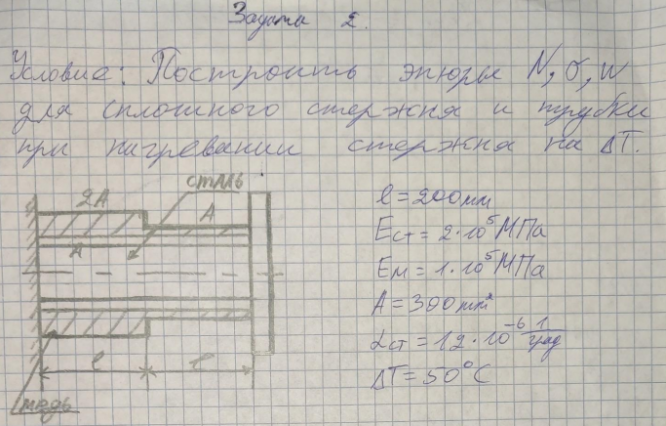 Задача 2.
Условие: Построить эпюры N, σ, w
для сплошного стержня и трубки
при нагревании стержня на ΔT.
сталь
2A
A
A
l = 200мм
Eст = 2·10⁵МПа
Eм = 1·10⁵МПа
A = 300мм²
αст = 12·10⁻⁶ 1/град
ΔT = 50°C
l
l
медь